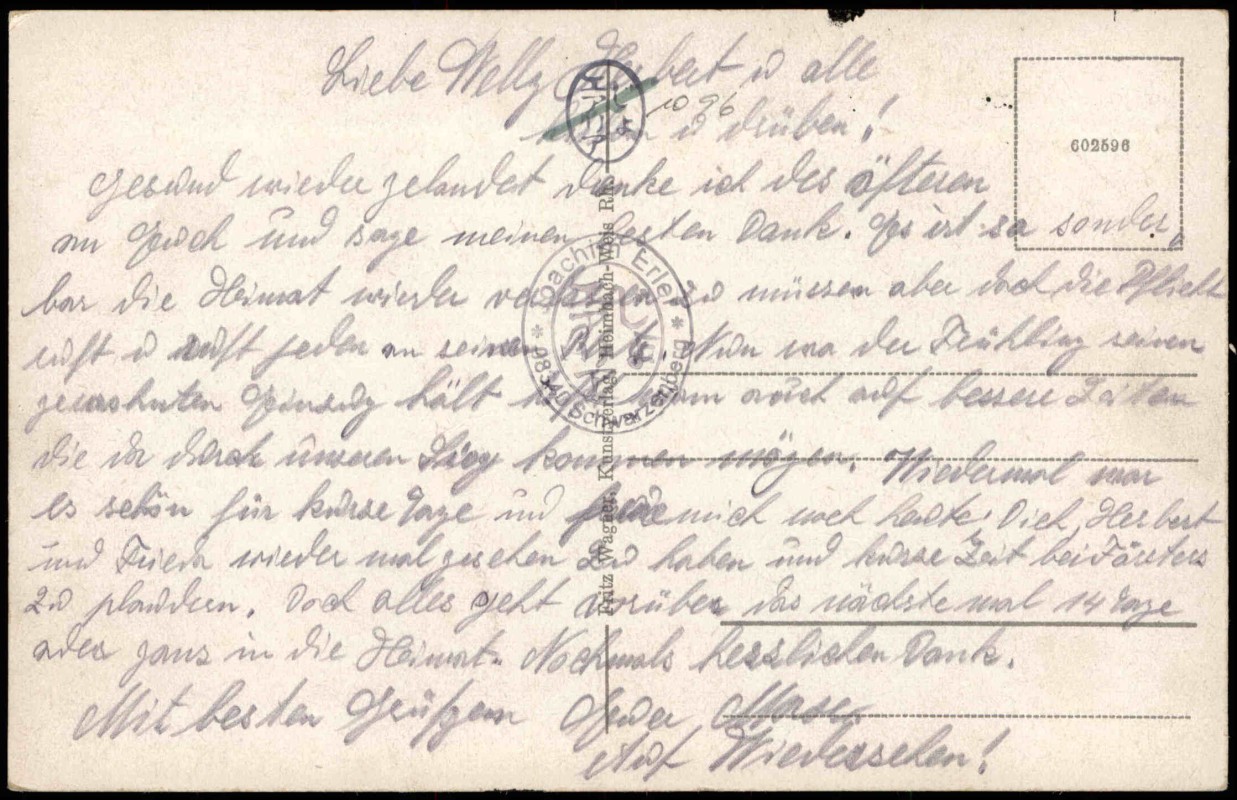 Liebe Welly Herbert u alle
u drüben!
10 96
602596
Gesund wieder gelandet denke ich des öfteren
an Euch und sage meinen besten Dank. Es ist so sonder-
bar die Heimat wieder verlassen zu müssen aber doch die Pflicht
ruft u ruft jeden an seinen Platz. Nun wo der Frühling seinen
gewohnten Einzug hält auch auf bessere Zeiten
die da durch unseren Sieg kommen mögen. Wiedermal war
es schön für kurze Tage und freue mich noch heute, Dich, Herbert
und Frieda wieder mal gesehen zu haben und kurze Zeit bei Försters
zu plaudern. Doch alles geht vorüber das nächste mal 14 Tage
oder ganz in die Heimat. Nochmals herzlichen Dank.
Mit besten Grüßen Euer
Auf Wiedersehen!
Fritz Wagner, Kunstverlag, Heimbach-Weis Rh.
* Joachim Erler * 08340 Schwarzenberg